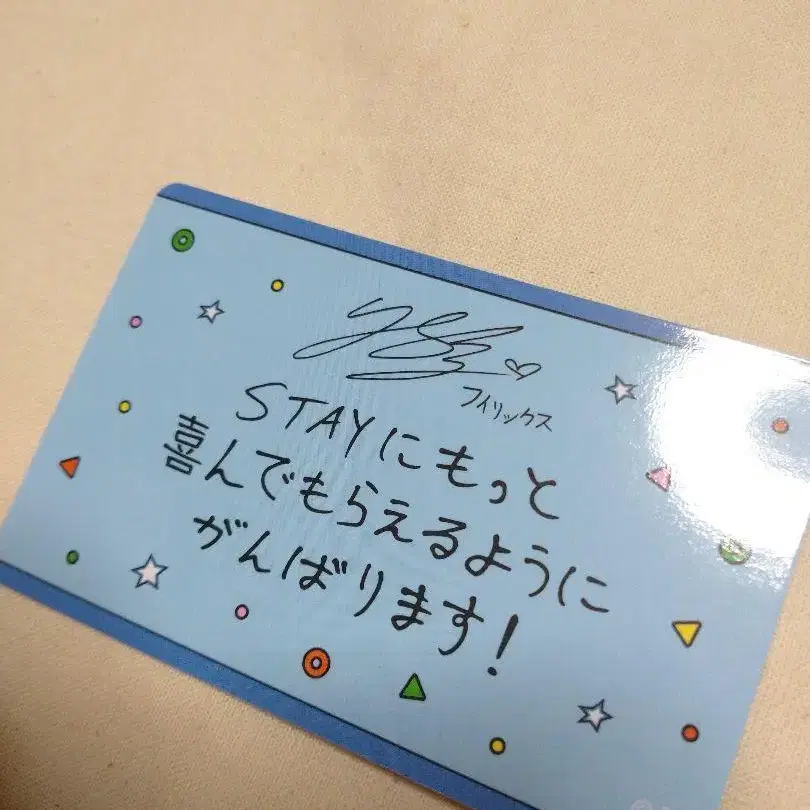 フィリックス
STAYにもっと
喜んでもらえるように
がんばります!